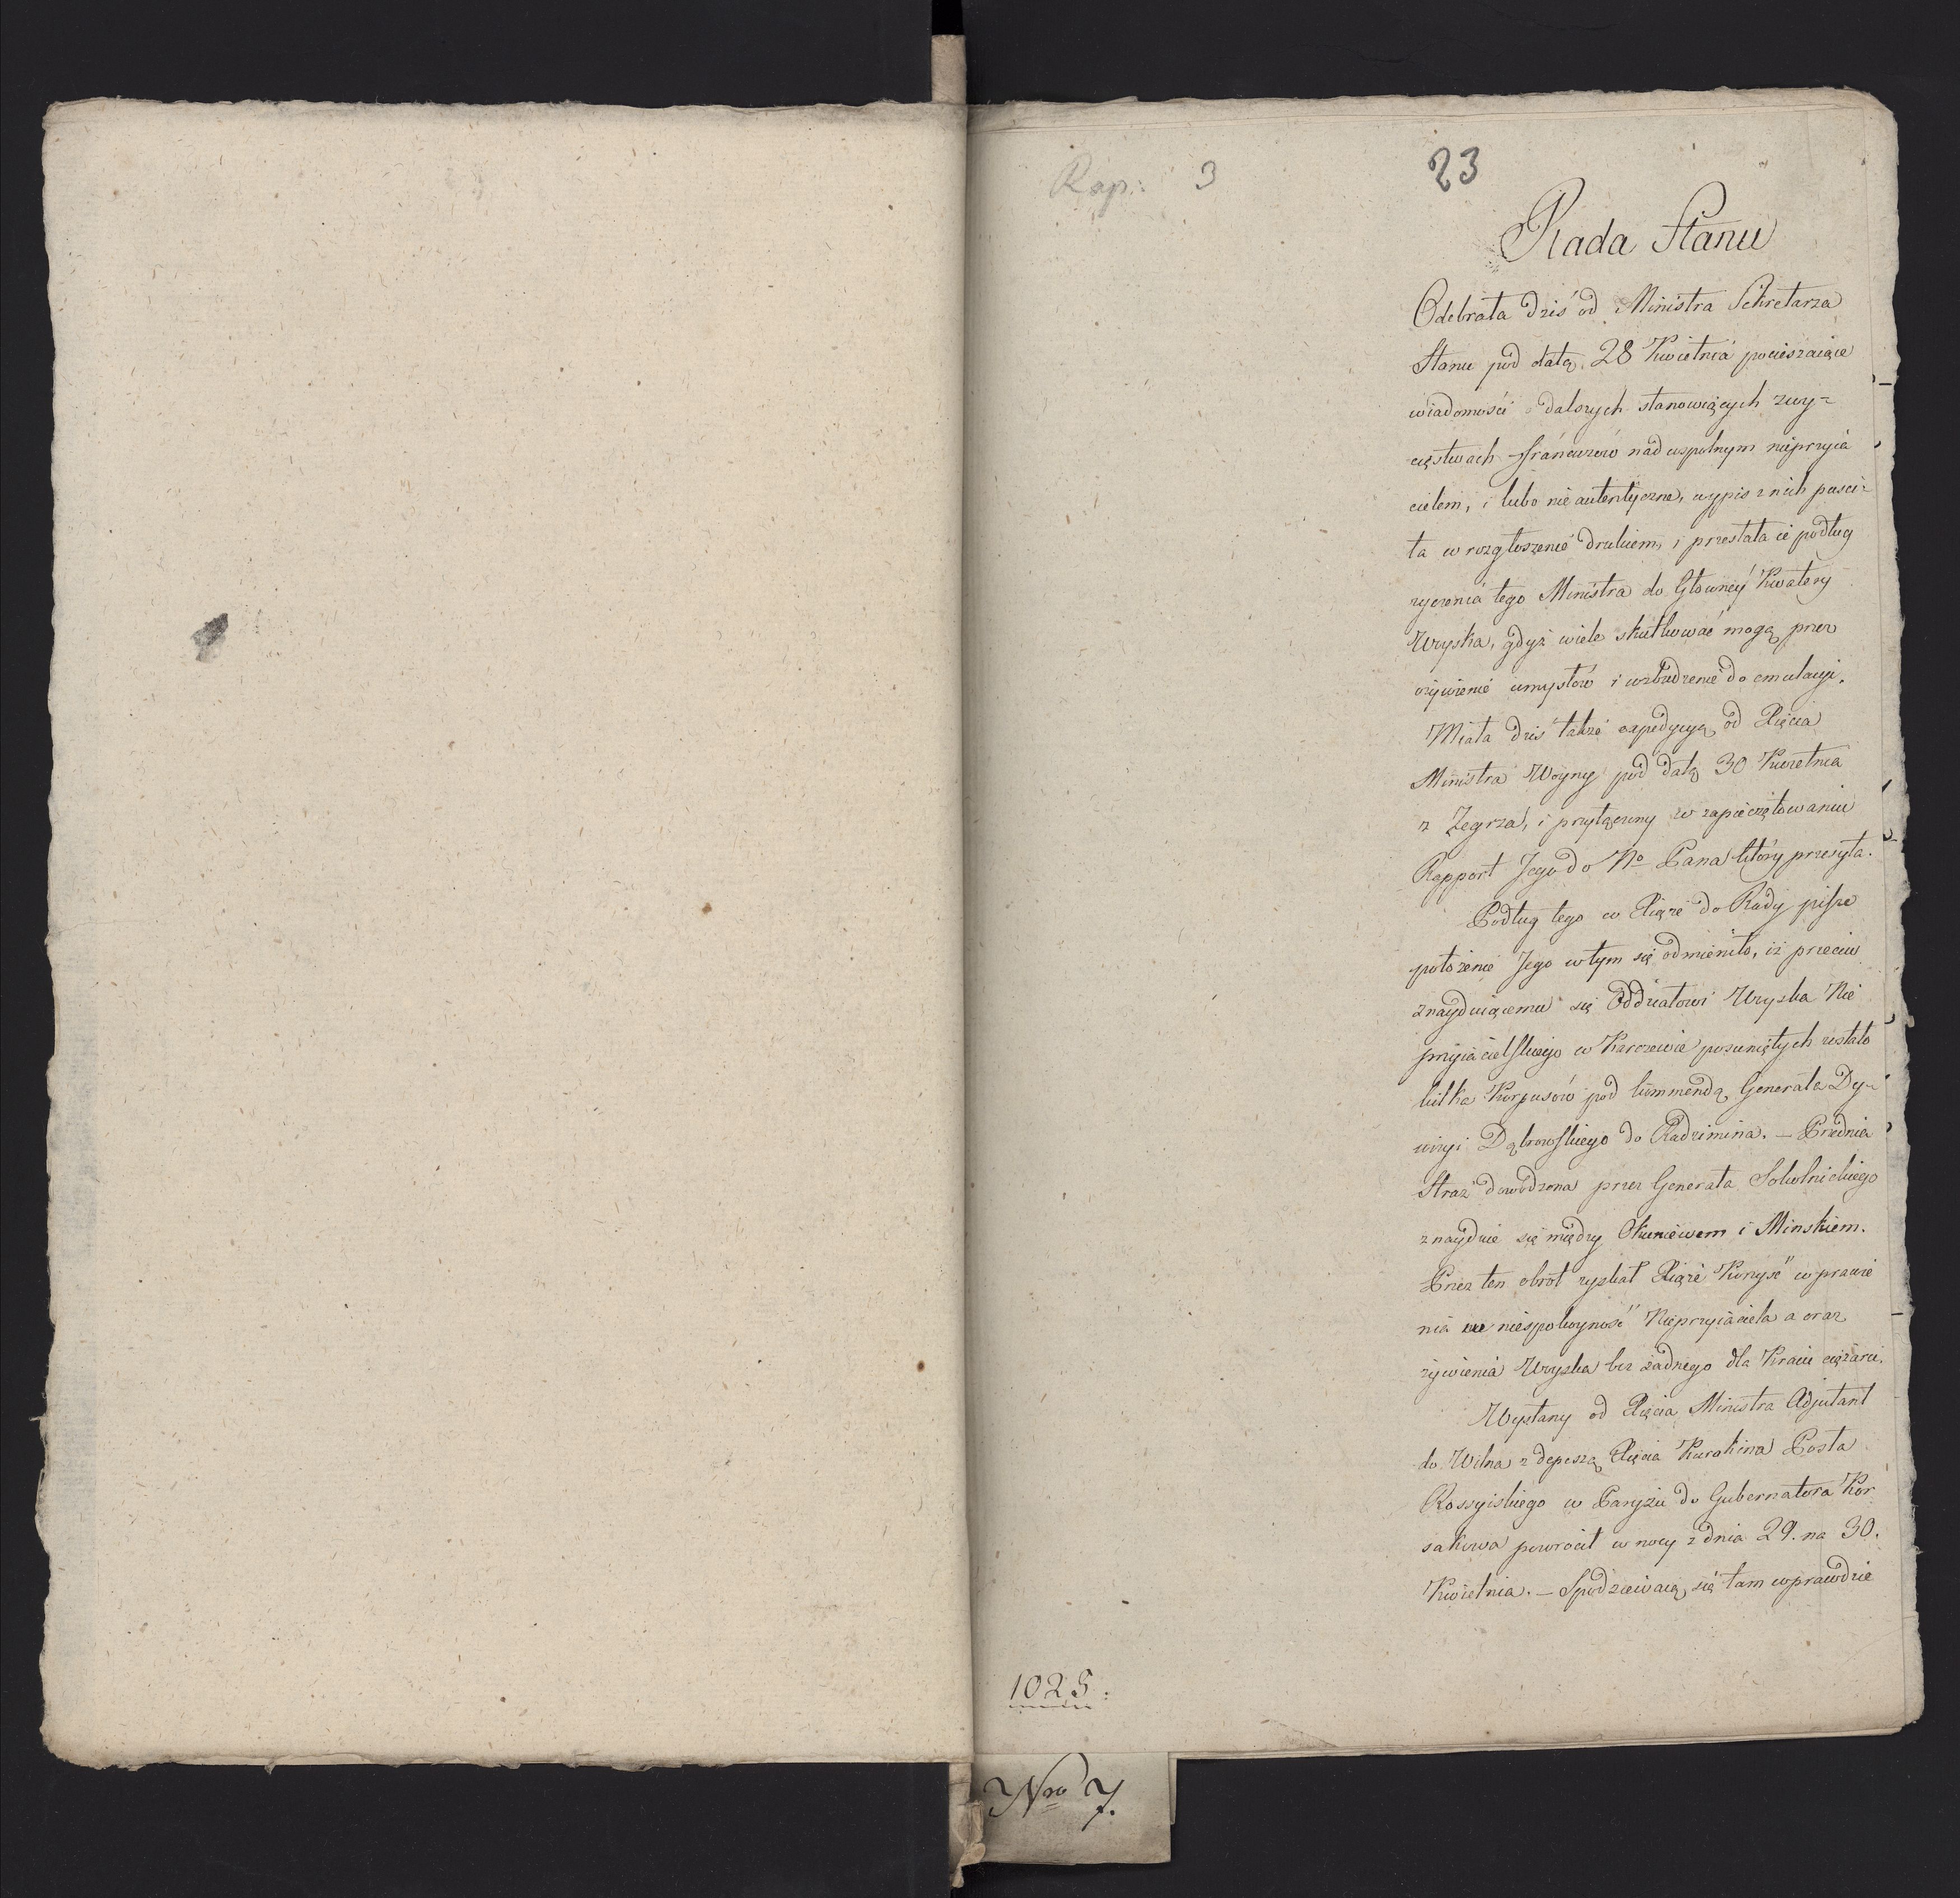 Rap: 3
23
Rada Stanu
Odebrała dziś od Ministra Sekretarza
Stanu pod datą 28 Kwietnia pocieszaiące
wiadomości o dalszych stanowiących zwy-
cięstwach Francuzów nad wspolnym nieprzyia
cielem, i lubo nie autentyczne, wypis z nich puści-
ła w rozgłoszenie drukiem, i przesłała ie podług
życzenia tego Ministra do Głowney Kwatery
Woyska, gdyż wiele skutkować mogą przez
ożywienie umysłów i wzbudzenie do emulacyi.
Miała dziś także expedycyą od Xięcia
Ministra Woyny pod datą 30 Kwietnia
z Zegrza, i przyłączony w zapieczętowaniu
Rapport Jego do No Pana który przesyła.
Podług tego co Xiąże do Rady pisze
położenie Jego w tym się odmieniło, iż przeciw
znayduiącemu się Oddziałowi Woyska Nie
przyiacielskiego w Karczewie posuniętych zostało
kilka Korpusów pod kommendą Generała Dy-
wizyi Dąbrowskiego do Radzimina. – Przednia
Straż dowodzona przez Generała Sokolnickiego
znayduie się między Okuniewem i Minskiem.
Przez ten obrót zyskał Xiąże Korzyść wprawie
nia w niespokoyność Nieprzyiaciela a oraz
żywienia Woyska bez żadnego dla Kraiu ciężaru.
Wysłany od Xięcia Ministra Adjutant
do Wilna z depeszą Xięcia Kurakina Posła
Rossyiskiego w Paryżu do Gubernatora Kor
sakowa powrócił w nocy z dnia 29. na 30.
Kwietnia. – Spodziewaią się tam wprawdzie
1025:
Nro 7.